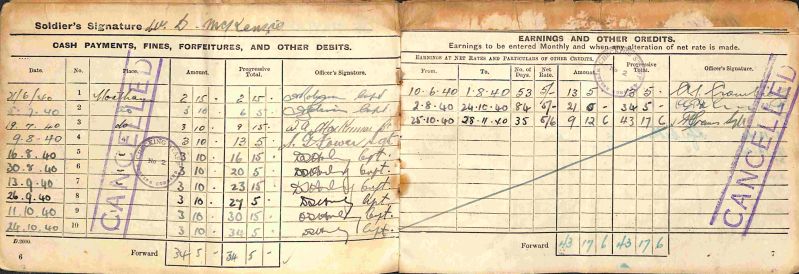 Soldier's Signature W. D. McKenzie
CASH PAYMENTS, FINES, FORFEITURES, AND OTHER DEBITS.
Date. No. Place. Amount. Progressive Total. Officer's Signature.
21/6/40 1 2 15 2 15 Capt
5.7.40 2 do 3 10 6 5 Capt
19.7.40 3 do 3 10 9 15
9.8.40 4 3 10 13 5
16.8.40 5 3 10 16 15 Capt.
30.8.40 6 3 10 20 5 Capt.
13.9.40 7 3 10 23 15 Capt.
26.9.40 8 3 10 27 5 Capt.
11.10.40 9 3 10 30 15 Capt.
24.10.40 10 3 10 34 5 Capt.
CANCELLED
No 2
D.2600.
Forward 34 5 - 34 5 -
6
EARNINGS AND OTHER CREDITS.
Earnings to be entered Monthly and when any alteration of net rate is made.
EARNINGS AT NET RATES AND PARTICULARS OF OTHER CREDITS.
From. To. No. of Days. Net Rate. Amount. Progressive Total. Officer's Signature.
10.6.40 1.8.40 53 5/- 13 5 13 5
2.8.40 24.10.40 84 5/- 21 0 - 34 5 -
25.10.40 28.11.40 35 5/6 9 12 6 43 17 6
No 2
CANCELLED
Forward 43 17 6 43 17 6
7